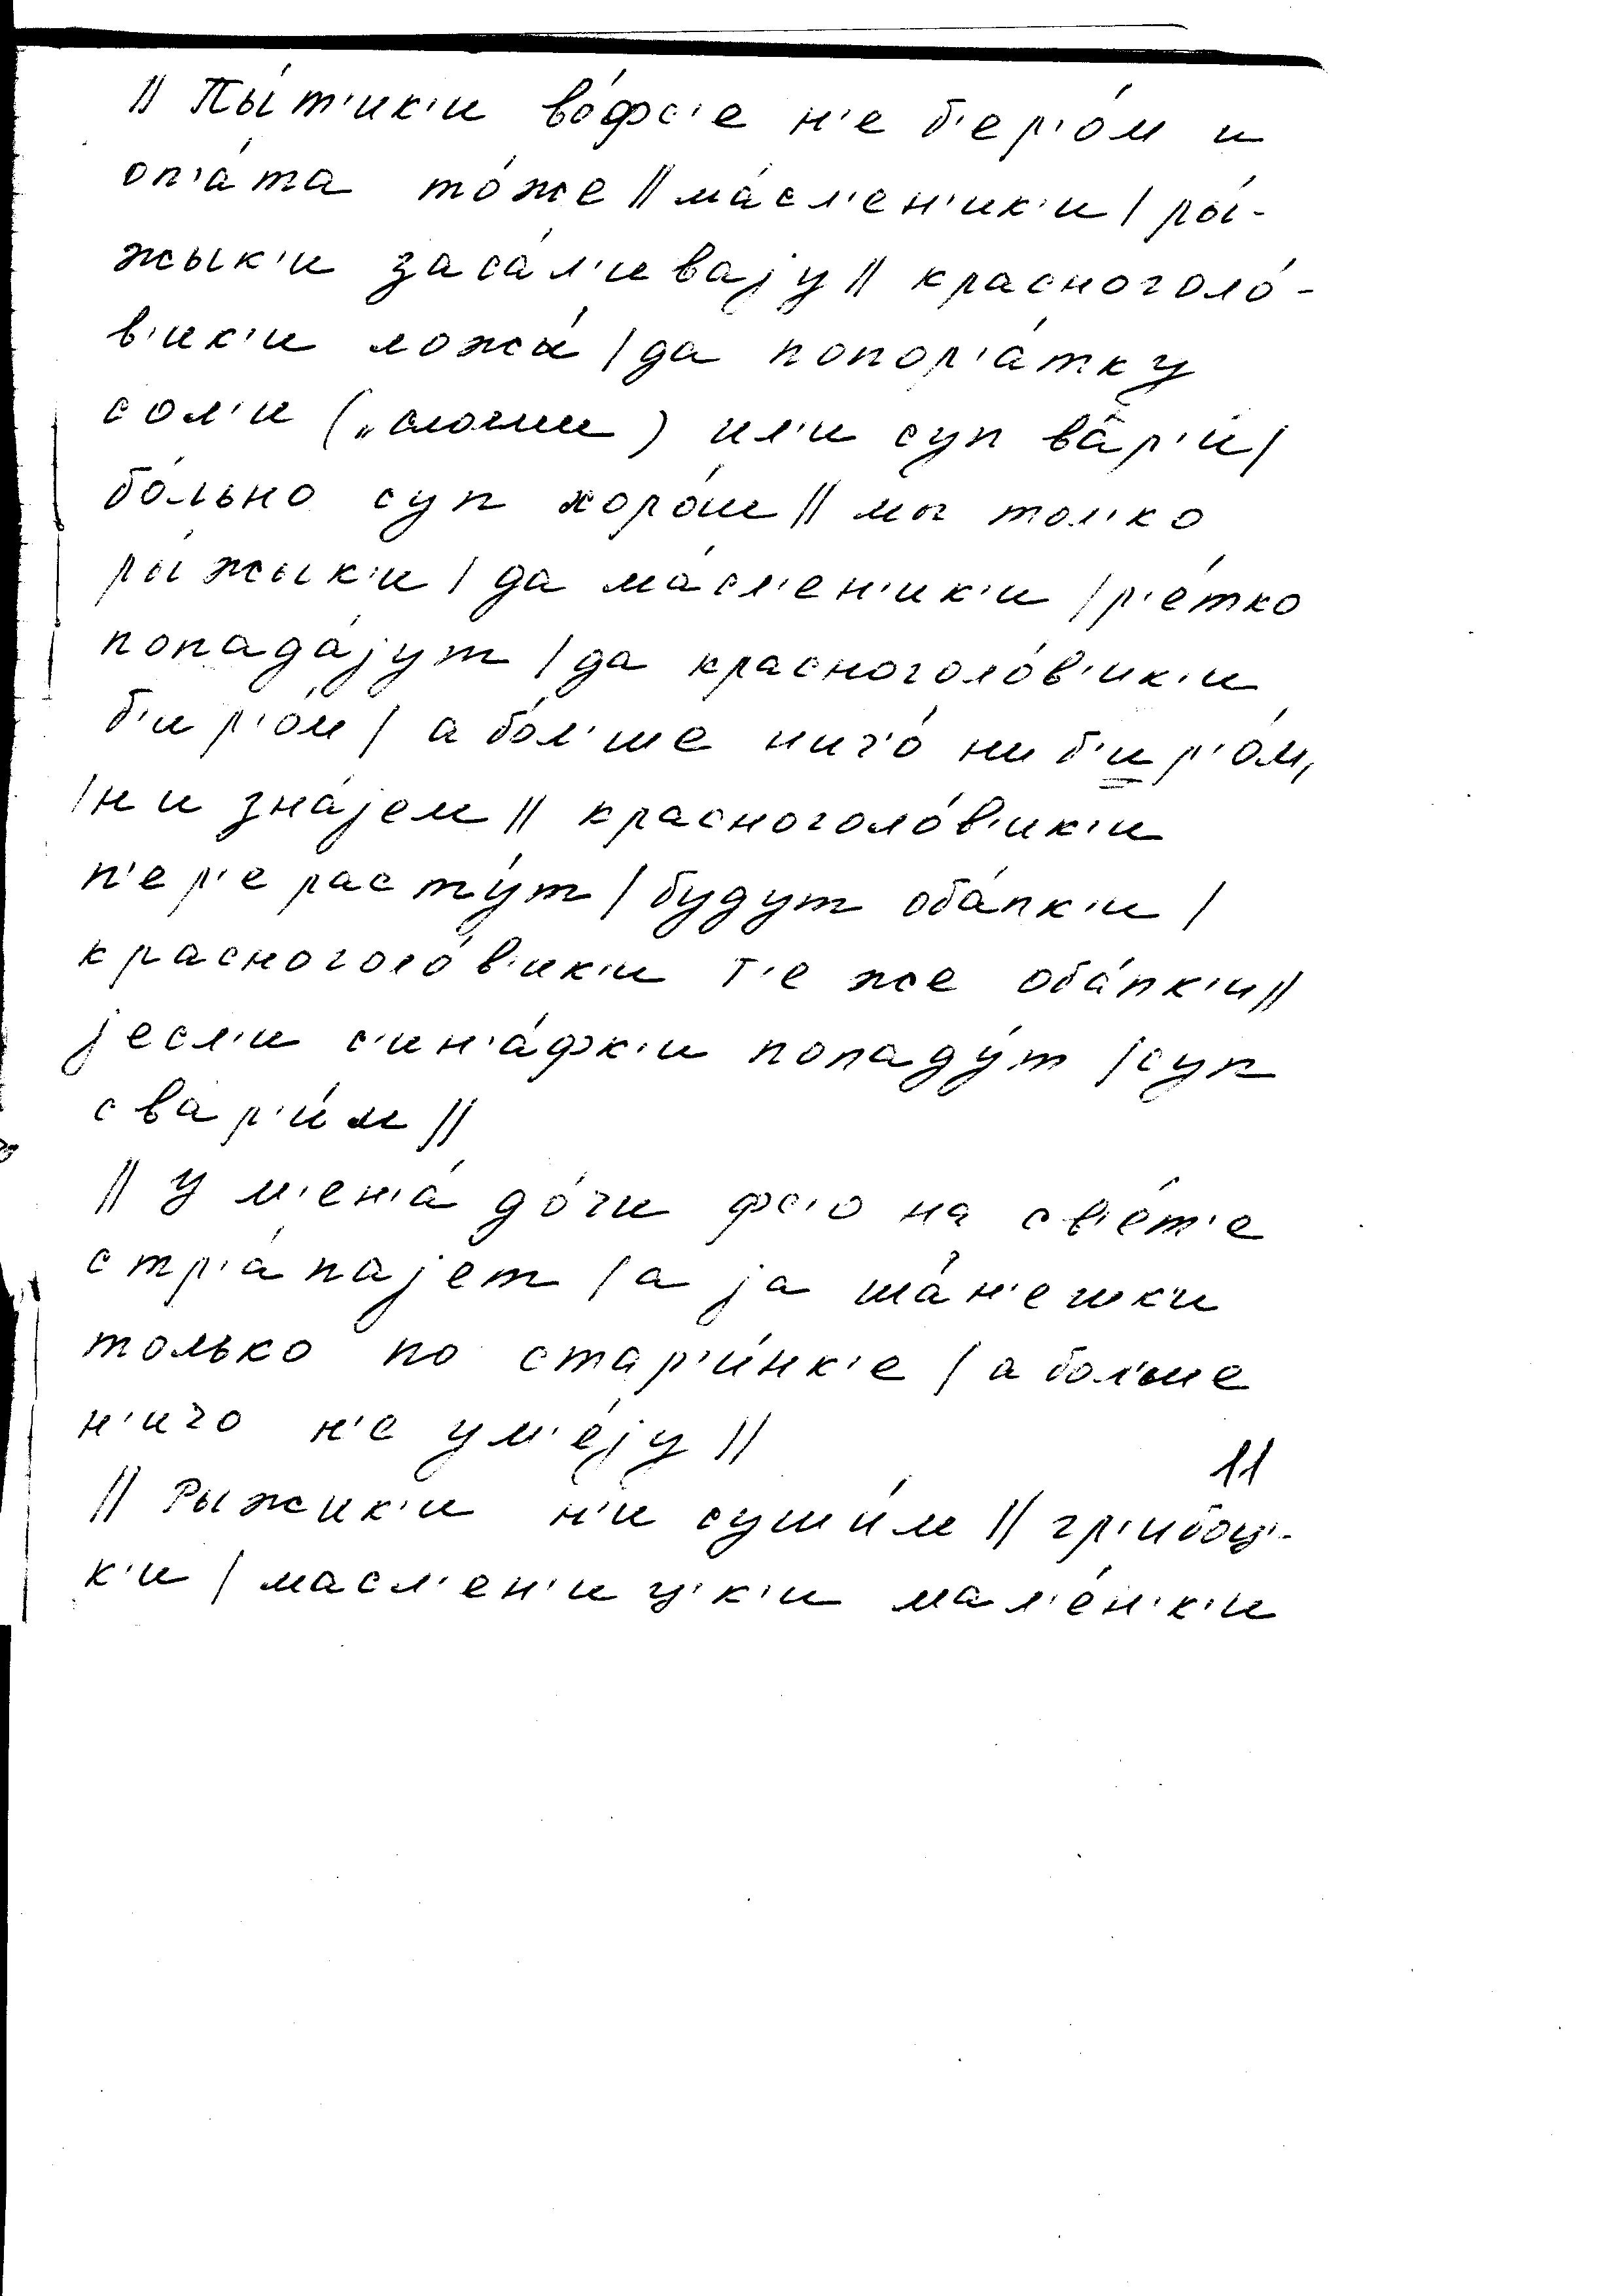 || Пы́т'ик'и во́фс'е н'е б'ер'о́м и
оп'а́та то́же || ма́сл'ен'ик'и | ры́-
жык'и заса́л'иваjу || красноголо́-
в'ик'и ложы́ | да попор'а́тку
сол'и („слоями) ил'и суп вар'и́ |
бо́льно суп хоро́ш || мы тол'ко
ры́жык'и | да ма́сл'ен'ик'и | р'е́тко
попада́jут | да красноголо́в'ик'и
б'ир'о́м | а бо́л'ше нич'о́ ни б'ир'о́м,
| ни зна́jем || красноголо́в'ик'и
п'ер'ерасту́т | будут оба́пк'и |
красноголо́в'ик'и т'е же оба́пк'и ||
jесл'и с'ин'а́фк'и попаду́т | суп
свар'и́м ||
|| У м'ен'а́ до́чи фс'о на св'е́т'е
стр'а́паjет | а jа ша́н'ешки
только по стар'и́нк'е | а бол'ше
н'ичо н'е ум'е́jу ||
11
|| Рыжик'и н'и суши́м || гр'ибоц'-
к'и | масл'ен'иц'к'и мал'е́н'к'и